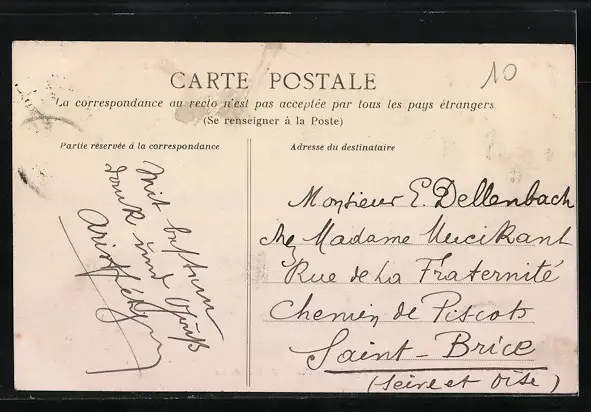 10
CARTE POSTALE
La correspondance au recto n'est pas acceptée par tous les pays étrangers
(Se renseigner à la Poste)
Partie réservée à la correspondance
Mit bestem
Dank und Gruß
Adresse du destinataire
Monsieur E. Dellenbach
chez Madame
Rue de La Fraternité
Chemin de Piscots
Saint-Brice
(Seine et Oise)